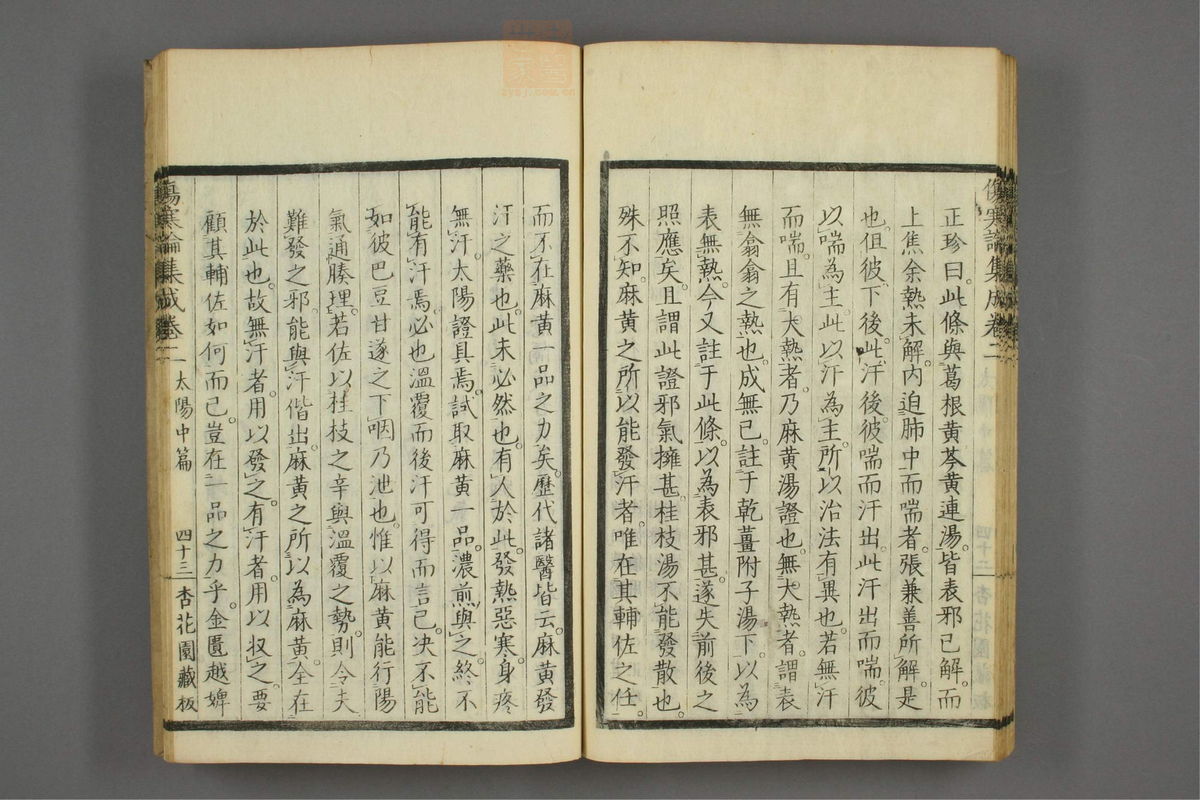 正珍曰。此條與葛根黄芩黄連湯。皆表邪已解。而
上焦余熱未解。内迫肺中而喘者。張兼善所解。是
也。但彼下後。此汗後。彼喘而汗出。此汗出而喘。彼
以喘為主。此以汗為主。所以治法有異也。若無汗
而喘。且有大熱者。乃麻黄湯證也。無大熱者。謂表
無翕翕之熱也。成無已註于乾薑附子湯下。以為
表無熱。今又註于此條。以為表邪甚。遂失前後之
照應矣。且謂此證邪氣擁甚。桂枝湯不能發散也。
殊不知麻黄之所以能發汗者。唯在其輔佐之任。
而不在麻黄一品之力矣。歴代諸醫皆云。麻黄發
汗之藥也。此未必然也。有人於此。發熱惡寒。身疼
無汗。太陽證具焉。試取麻黄一品。濃煎與之。終不
能有汗焉。必也溫覆而後汗可得而言已。决不能
如彼巴豆甘遂之下咽乃泄也。惟以麻黄能行陽
氣。通腠理。若佐以桂枝之辛。與溫覆之勢。則令夫
難發之邪。能與汗偕出。麻黄之所以為麻黄。全在
於此也。故無汗者。用以發之。有汗者。用以收之。要
顧其輔佐如何而已。豈在一品之力乎。金匱越婢
傷寒論集成卷二
太陽中篇
四十三
杏花園藏板
傷寒論集成卷二
zysj.com.cn